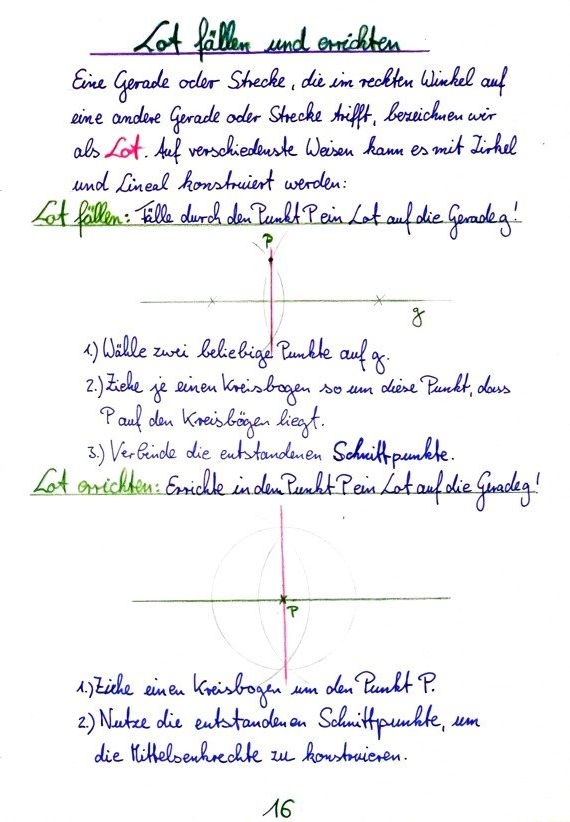 Lot fällen und errichten
Eine Gerade oder Strecke, die im rechten Winkel auf
eine andere Gerade oder Strecke trifft, bezeichnen wir
als Lot. Auf verschiedenste Weisen kann es mit Zirkel
und Lineal konstruiert werden:
Lot fällen: Fälle durch den Punkt P ein Lot auf die Gerade g!
P
g
1.) Wähle zwei beliebige Punkte auf g.
2.) Ziehe je einen Kreisbogen so um diese Punkt, dass
P auf den Kreisbögen liegt.
3.) Verbinde die entstandenen Schnittpunkte.
Lot errichten: Errichte in dem Punkt P ein Lot auf die Gerade g!
P
1.) Ziehe einen Kreisbogen um den Punkt P.
2.) Nutze die entstandenen Schnittpunkte, um
die Mittelsenkrechte zu konstruieren.
16